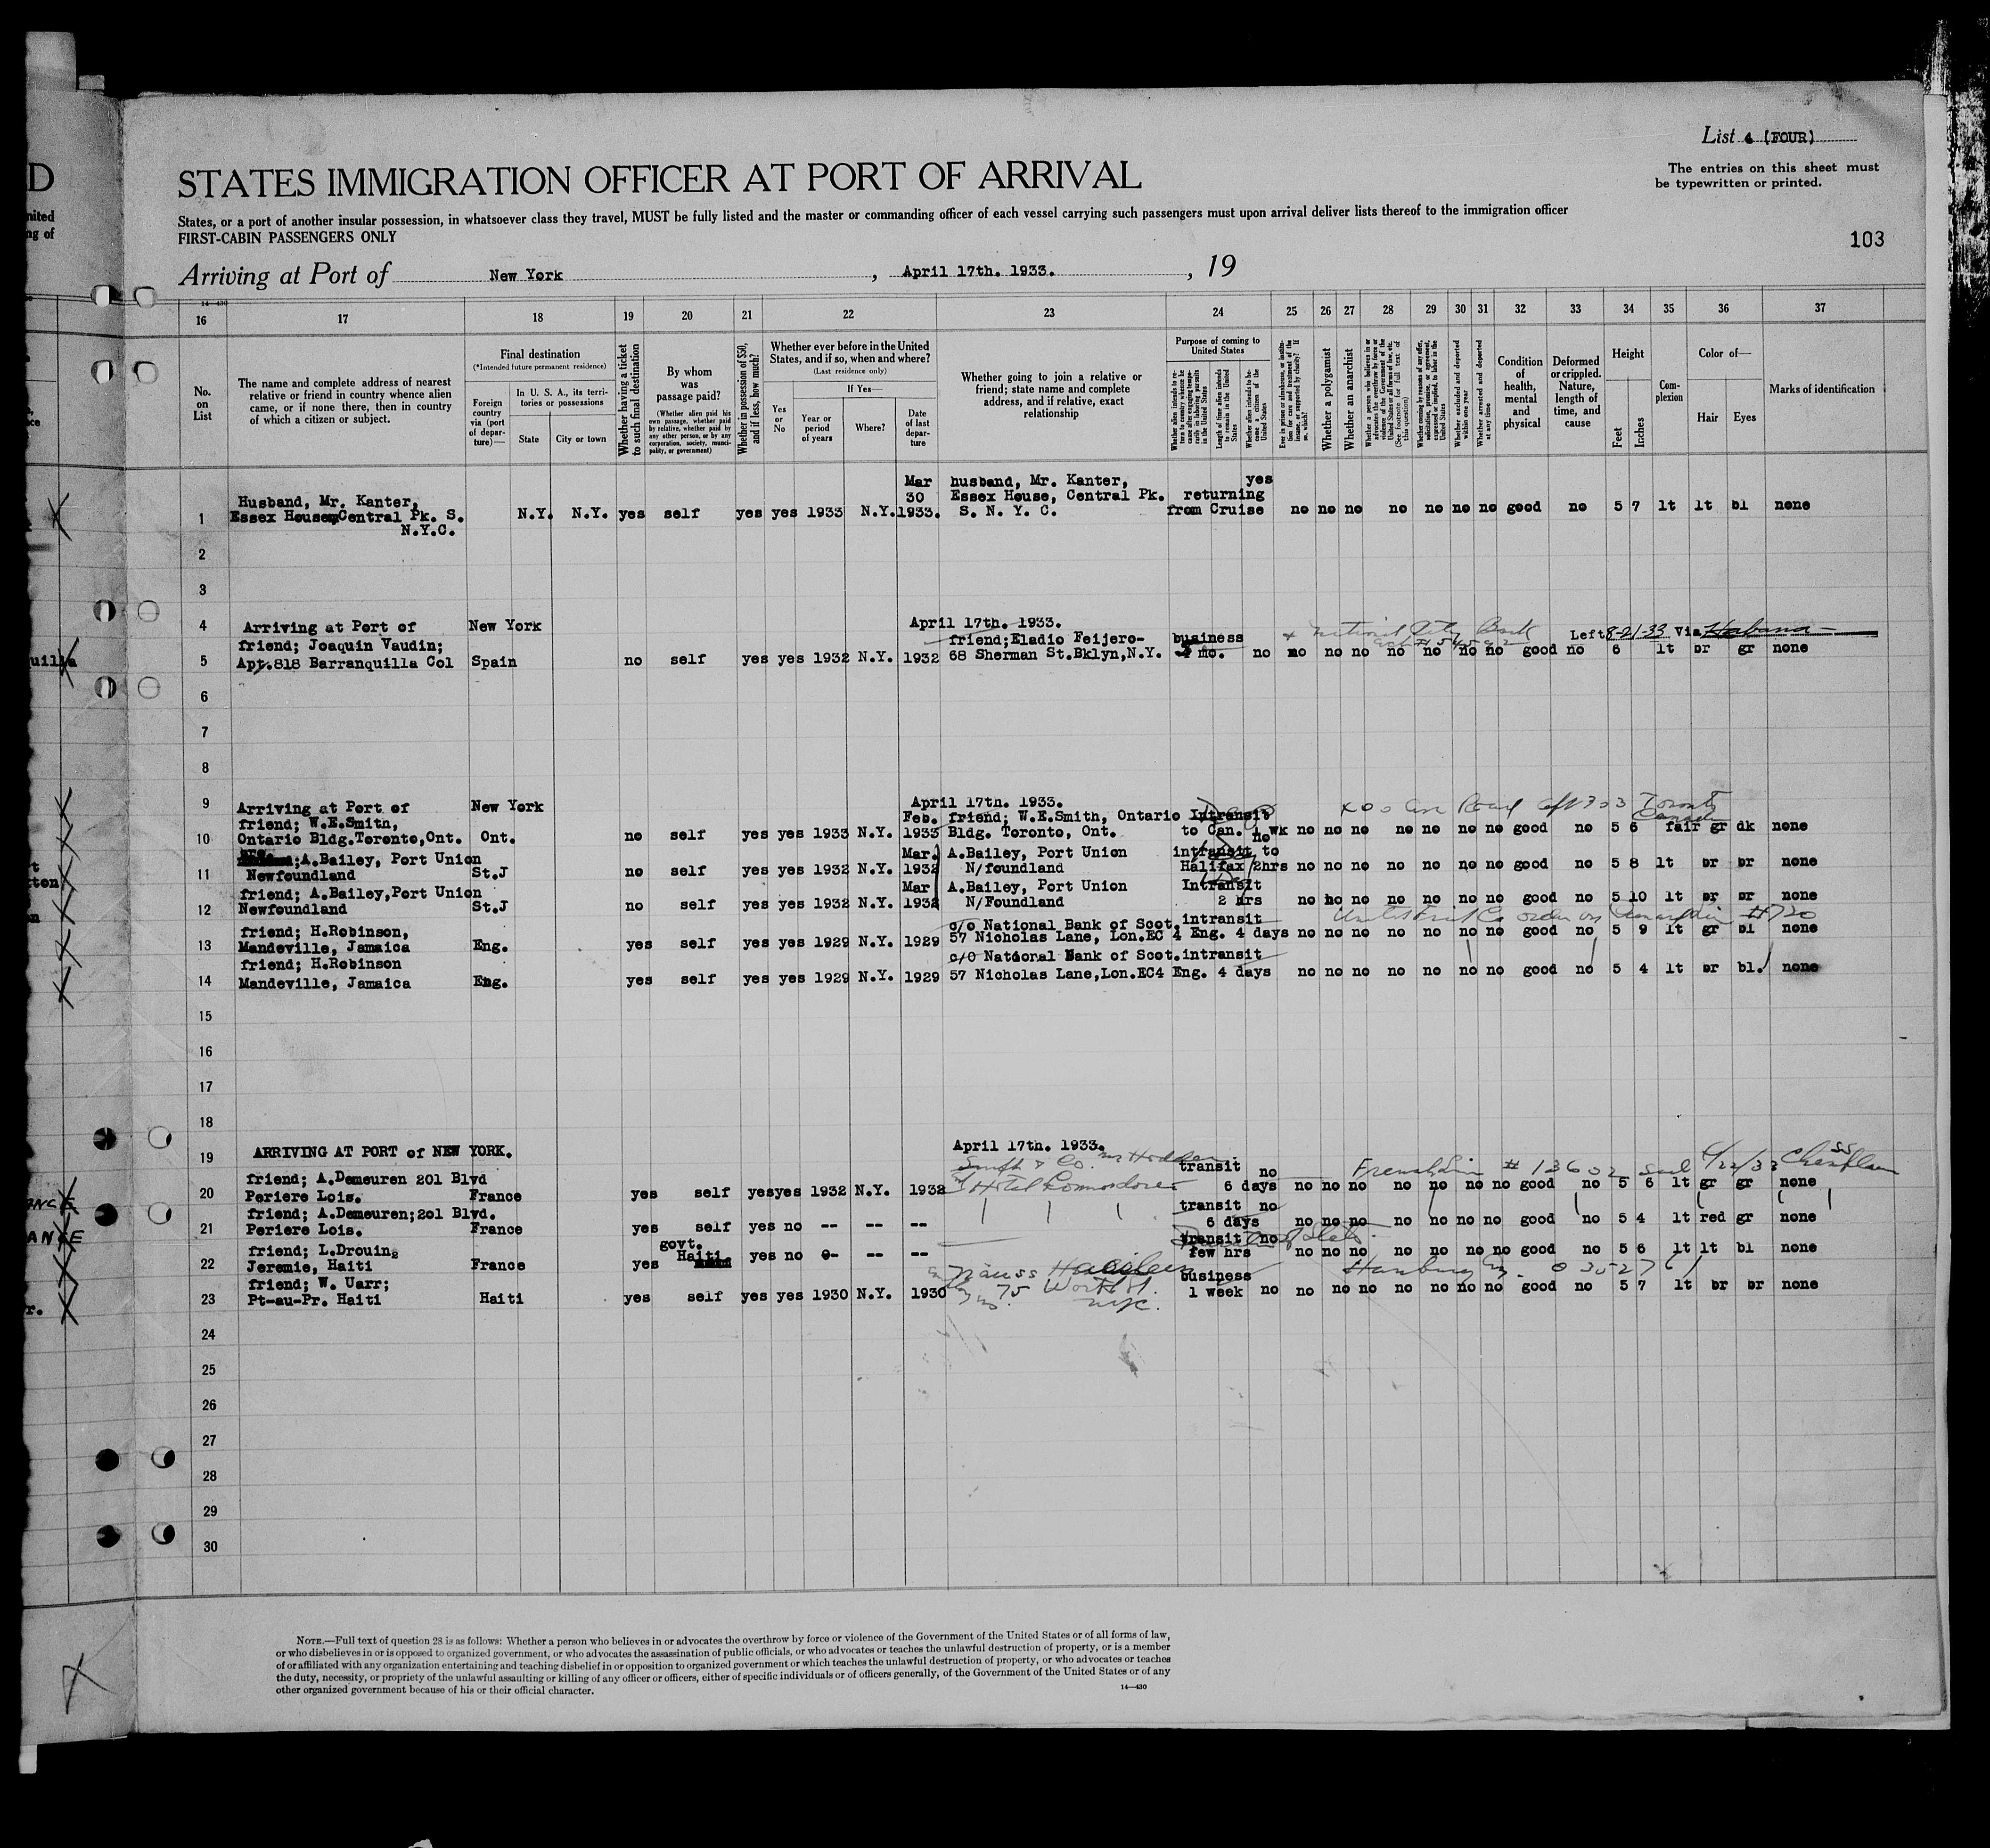 List 4 (FOUR)
STATES IMMIGRATION OFFICER AT PORT OF ARRIVAL
The entries on this sheet must
be typewritten or printed.
States, or a port of another insular possession, in whatsoever class they travel, MUST be fully listed and the master or commanding officer of each vessel carrying such passengers must upon arrival deliver lists thereof to the immigration officer
FIRST-CABIN PASSENGERS ONLY
103
Arriving at Port of New York, April 17th. 1933., 19
14-430
16 17 18 19 20 21 22 23 24 25 26 27 28 29 30 31 32 33 34 35 36 37
No. on List
The name and complete address of nearest relative or friend in country whence alien came, or if none there, then in country of which a citizen or subject.
Final destination
(*Intended future permanent residence)
Foreign country via (port of departure)—
In U. S. A., its territories or possessions
State
City or town
Whether having a ticket to such final destination
By whom was passage paid?
(Whether alien paid his own passage, whether paid by relative, whether paid by any other person, or by any corporation, society, municipality, or government)
Whether in possession of $50, and if less, how much?
Whether ever before in the United States, and if so, when and where?
(Last residence only)
Yes or No
If Yes—
Year or period of years
Where?
Date of last departure
Whether going to join a relative or friend; state name and complete address, and if relative, exact relationship
Purpose of coming to United States
Length of time alien intends to remain in the United States
Whether alien intends to become a citizen of the United States
Whether a polygamist
Whether an anarchist
Whether excluded and deported within one year
Whether arrested and deported at any time
Condition of health, mental and physical
Deformed or crippled. Nature, length of time, and cause
Height
Feet
Inches
Complexion
Color of—
Hair
Eyes
Marks of identification
Mar husband, Mr. Kanter, yes
Husband, Mr. Kanter, 30 Essex House, Central Pk. returning
1 Essex House, Central Pk. S. N.Y. N.Y. yes self yes yes 1933 N.Y. 1933. S. N. Y. C. from Cruise no no no no no no no good no 5 7 lt lt bl none
N.Y.C.
2
3
4 Arriving at Port of New York April 17th. 1933.
friend; Joaquin Vaudin; friend;Eladio Feijero- business National City Bank Left 8-21-33 Via Habana
5 Apt.818 Barranquilla Col Spain no self yes yes 1932 N.Y. 1932 68 Sherman St.Bklyn,N.Y. mo. no no no no no no no no good no 6 lt br gr none
6
7
8
9 Arriving at Port of New York April 17th. 1933. Toronto
friend; W.E.Smith, Feb. friend; W.E.Smith, Ontario Intransit Canada
10 Ontario Bldg.Toronto,Ont. Ont. no self yes yes 1933 N.Y. 1933 Bldg. Toronto, Ont. to Can. 1 wk no no no no no no no no good no 5 6 fair gr dk none
;A.Bailey, Port Union Mar. A.Bailey, Port Union intransit to
11 Newfoundland St.J no self yes yes 1932 N.Y. 1932 N/foundland Halifax 2hrs no no no no no no no good no 5 8 lt br br none
friend; A.Bailey,Port Union Mar A.Bailey, Port Union Intransit
12 Newfoundland St.J no self yes yes 1932 N.Y. 1932 N/Foundland 2 hrs no no no no no no no good no 5 10 lt br br none
friend; H.Robinson, c/o National Bank of Scot. intransit
13 Mandeville, Jamaica Eng. yes self yes yes 1929 N.Y. 1929 57 Nicholas Lane, Lon.EC 4 Eng. 4 days no no no no no no no good no 5 9 lt gr bl none
friend; H.Robinson c/O National Bank of Scot.intransit
14 Mandeville, Jamaica Eng. yes self yes yes 1929 N.Y. 1929 57 Nicholas Lane,Lon.EC4 Eng. 4 days no no no no no no no good no 5 4 lt br bl. none
15
16
17
18
19 ARRIVING AT PORT of NEW YORK. April 17th. 1933.
Smith & Co.
friend; A.Demeuren 201 Blvd transit no # 13602
20 Periere Lois. France yes self yes yes 1932 N.Y. 1932 Hotel Commodore 6 days no no no no no no no good no 5 6 lt gr gr none
friend; A.Demeuren;201 Blvd. transit no
21 Periere Lois. France yes self yes no -- -- -- 6 days no no no no no no no good no 5 4 lt red gr none
friend; L.Drouin, govt. transit no
22 Jeremie, Haiti France yes Haiti. yes no -- -- few hrs no no no no no no no good no 5 6 lt lt bl none
friend; W. Uarr; business
23 Pt-au-Pr. Haiti Haiti yes self yes yes 1930 N.Y. 1930 75 Worth St. 1 week no no no no no no no no good no 5 7 lt br br none
NYC.
24
25
26
27
28
29
30
NOTE.—Full text of question 28 is as follows: Whether a person who believes in or advocates the overthrow by force or violence of the Government of the United States or of all forms of law,
or who disbelieves in or is opposed to organized government, or who advocates the assassination of public officials, or who advocates or teaches the unlawful destruction of property, or is a member
of or affiliated with any organization entertaining and teaching disbelief in or opposition to organized government or which teaches the unlawful destruction of property, or who advocates or teaches
the duty, necessity, or propriety of the unlawful assaulting or killing of any officer or officers, either of specific individuals or of officers generally, of the Government of the United States or of any
other organized government because of his or their official character.
14—430